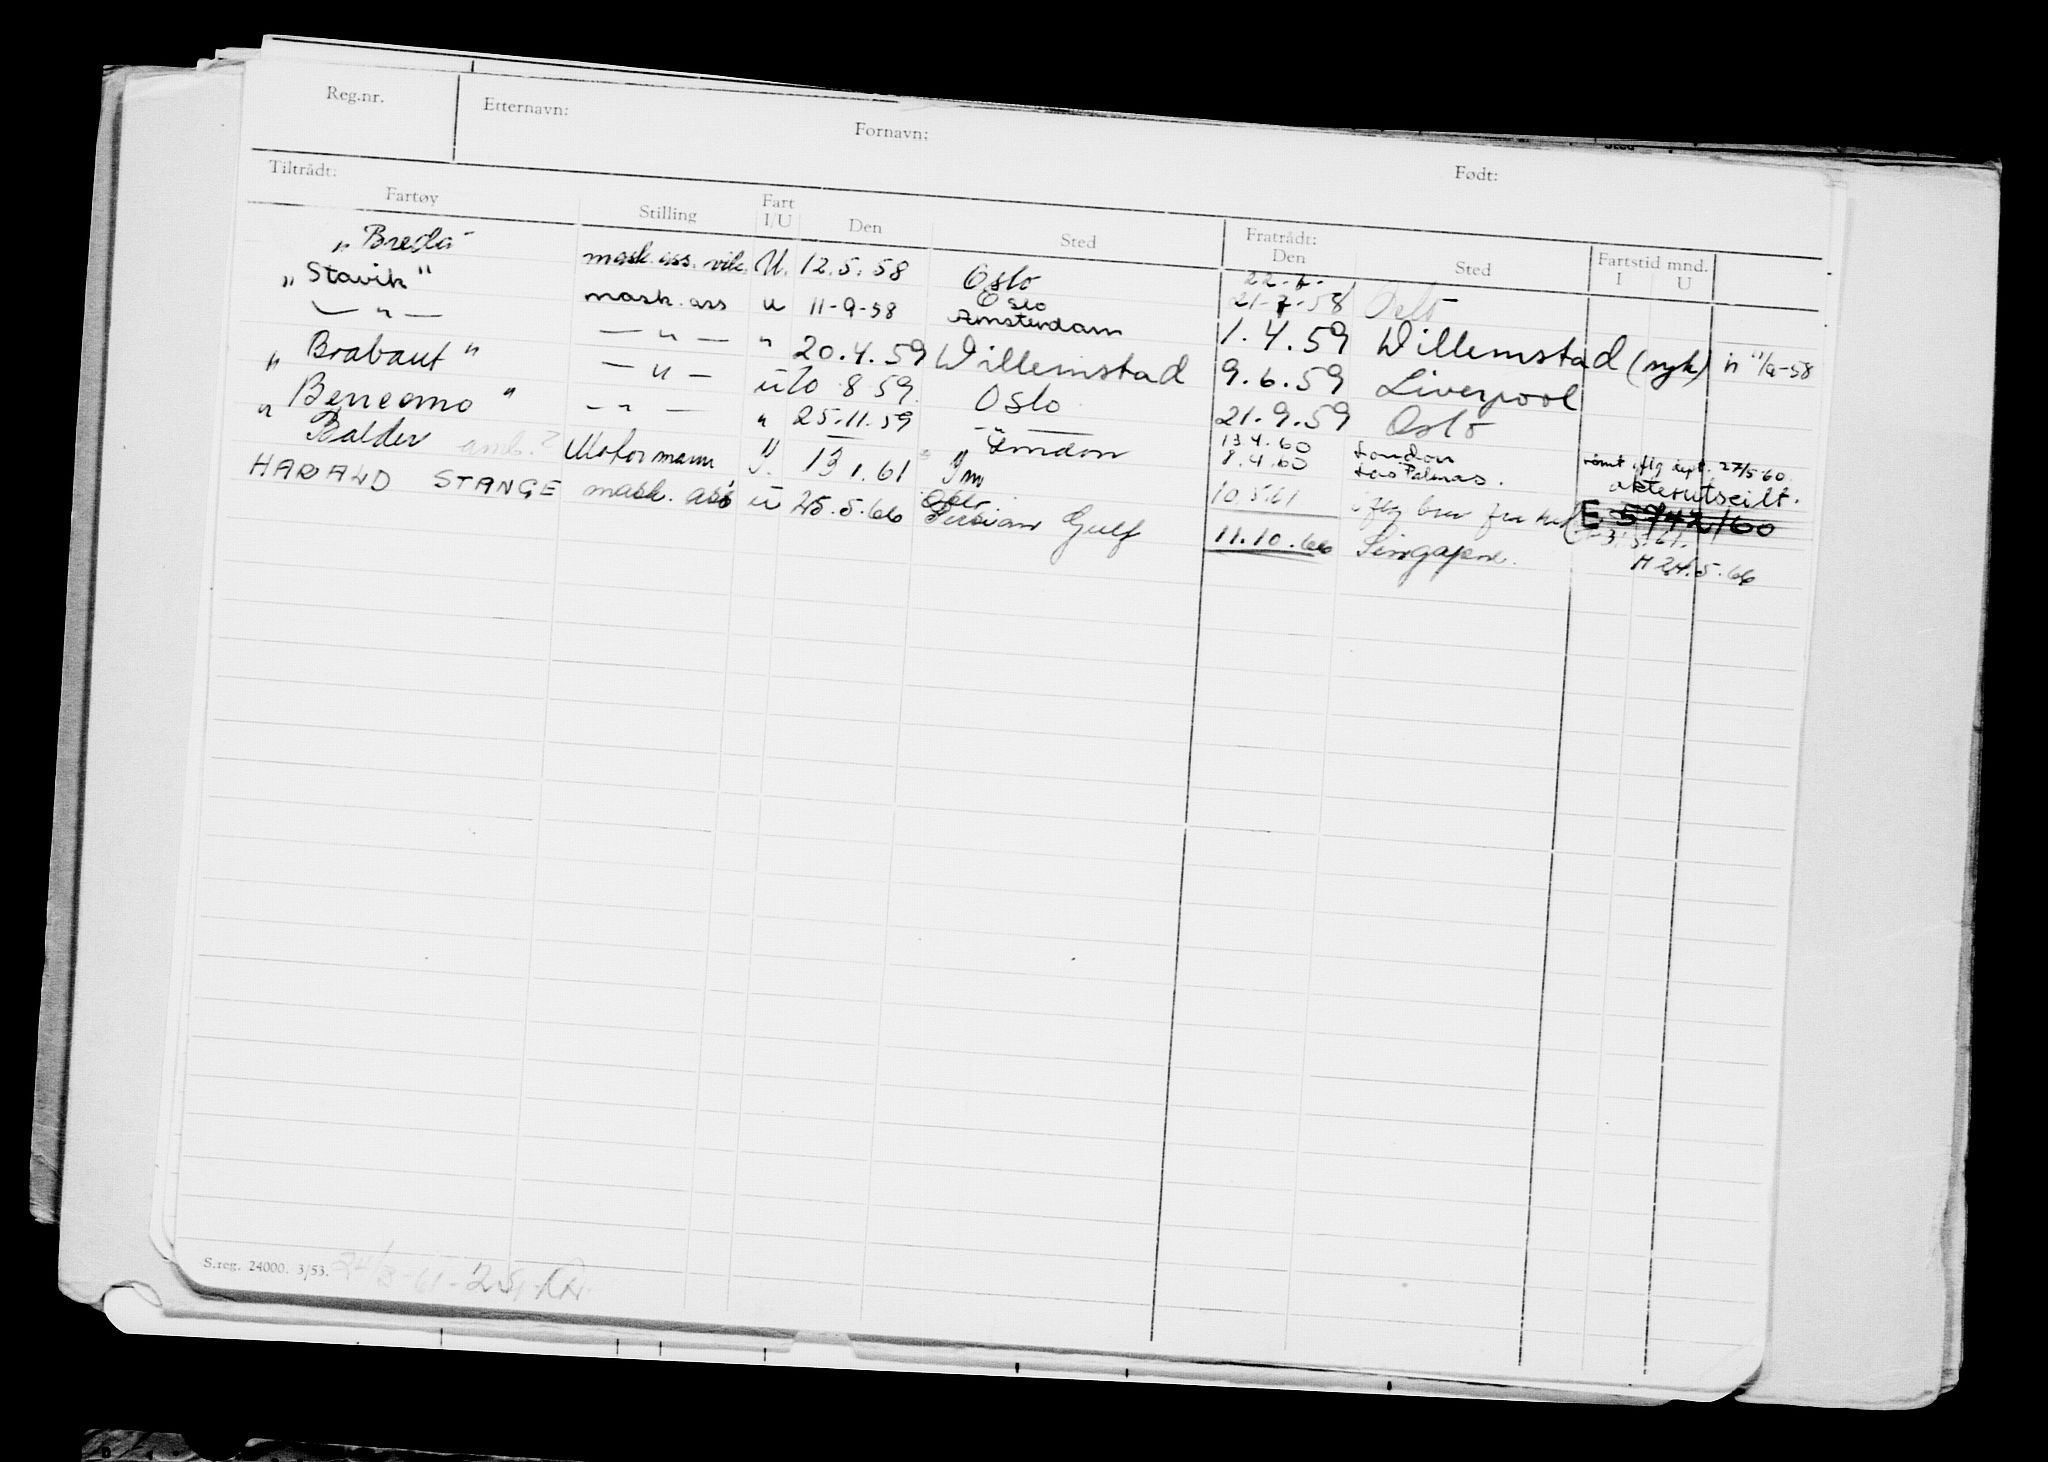 Reg.nr. Etternavn: Fornavn: Født:
Tiltrådt: Fratrådt:
Fartøy Stilling Fart I/U Den Sted Den Sted Fartstid mnd. I U
"Breda" mask. ass. vik. U. 12.5.58 Oslo 22.7. 21-7-58 Oslo
"Stavik" mask. ass u 11-9-58 Oslo Amsterdam 1.4.59 Willemstad (syk) 11/9-58
— " — — " — " 20.4.59 Willemstad 9.6.59 Liverpool
"Brabant" — " — u 10 8 59 Oslo 21.9.59 Oslo
"Bencomo" — " — " 25.11.59 — " — 13.4.60 London rømt iflg dept. 27/5-60
8.4.60 Las Palmas. akterutseilt.
"Balder Motormann 13 1.61 London 10 5 61 iflg brev fra E 5742/60
HARALD STANGE mask. ass u 25.5.66 Persian Gulf 11.10.66 Singapore. 24.5.66
S.reg. 24000. 3/53.